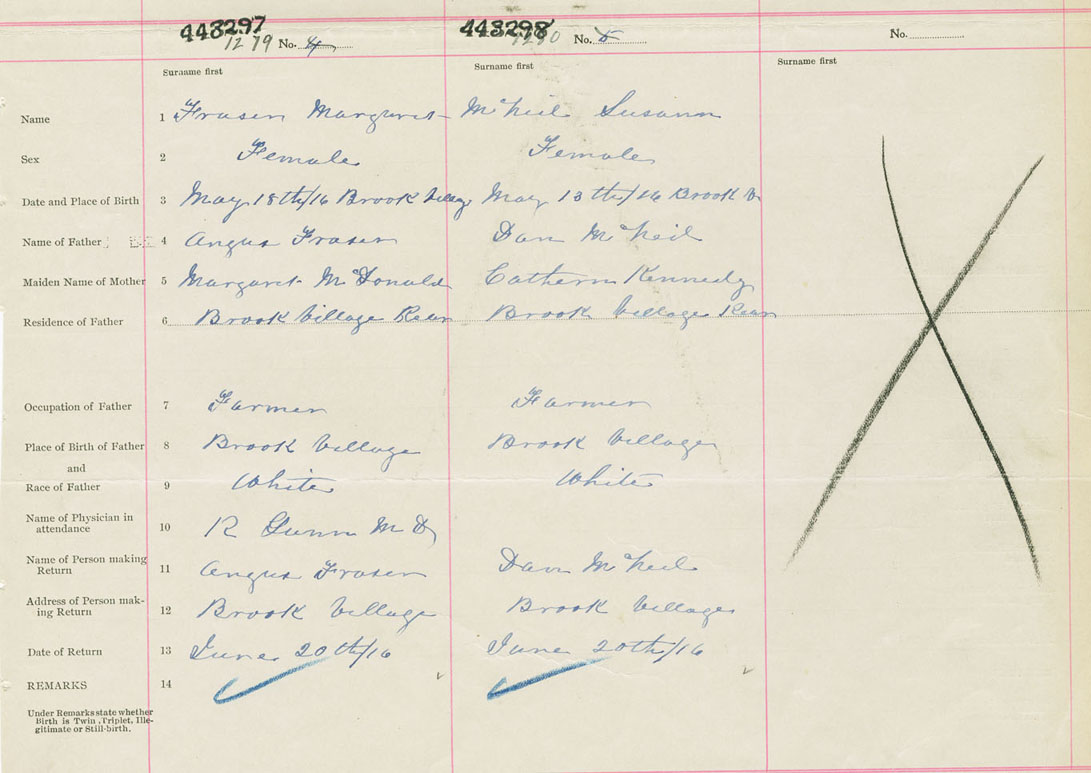 443297 443298
1279 No. 4 1280 No. 5 No.
Surname first Surname first Surname first
Name 1 Fraser Margaret McNeil Susann
Sex 2 Female Female
Date and Place of Birth 3 May 18th/16 Brook Village May 13th/16 Brook V
Name of Father 4 Angus Fraser Dan McNeil
Maiden Name of Mother 5 Margaret McDonald Catherin Kennedy
Residence of Father 6 Brook Village Rear Brook Village Rear
Occupation of Father 7 Farmer Farmer
Place of Birth of Father 8 Brook Village Brook Village
and
Race of Father 9 White White
Name of Physician in
attendance 10 R Gunn M D
Name of Person making
Return 11 Angus Fraser Dan McNeil
Address of Person mak-
ing Return 12 Brook Village Brook Village
Date of Return 13 June 20th/16 June 20th/16
REMARKS 14
Under Remarks state whether
Birth is Twin, Triplet, Ille-
gitimate or Still-birth.